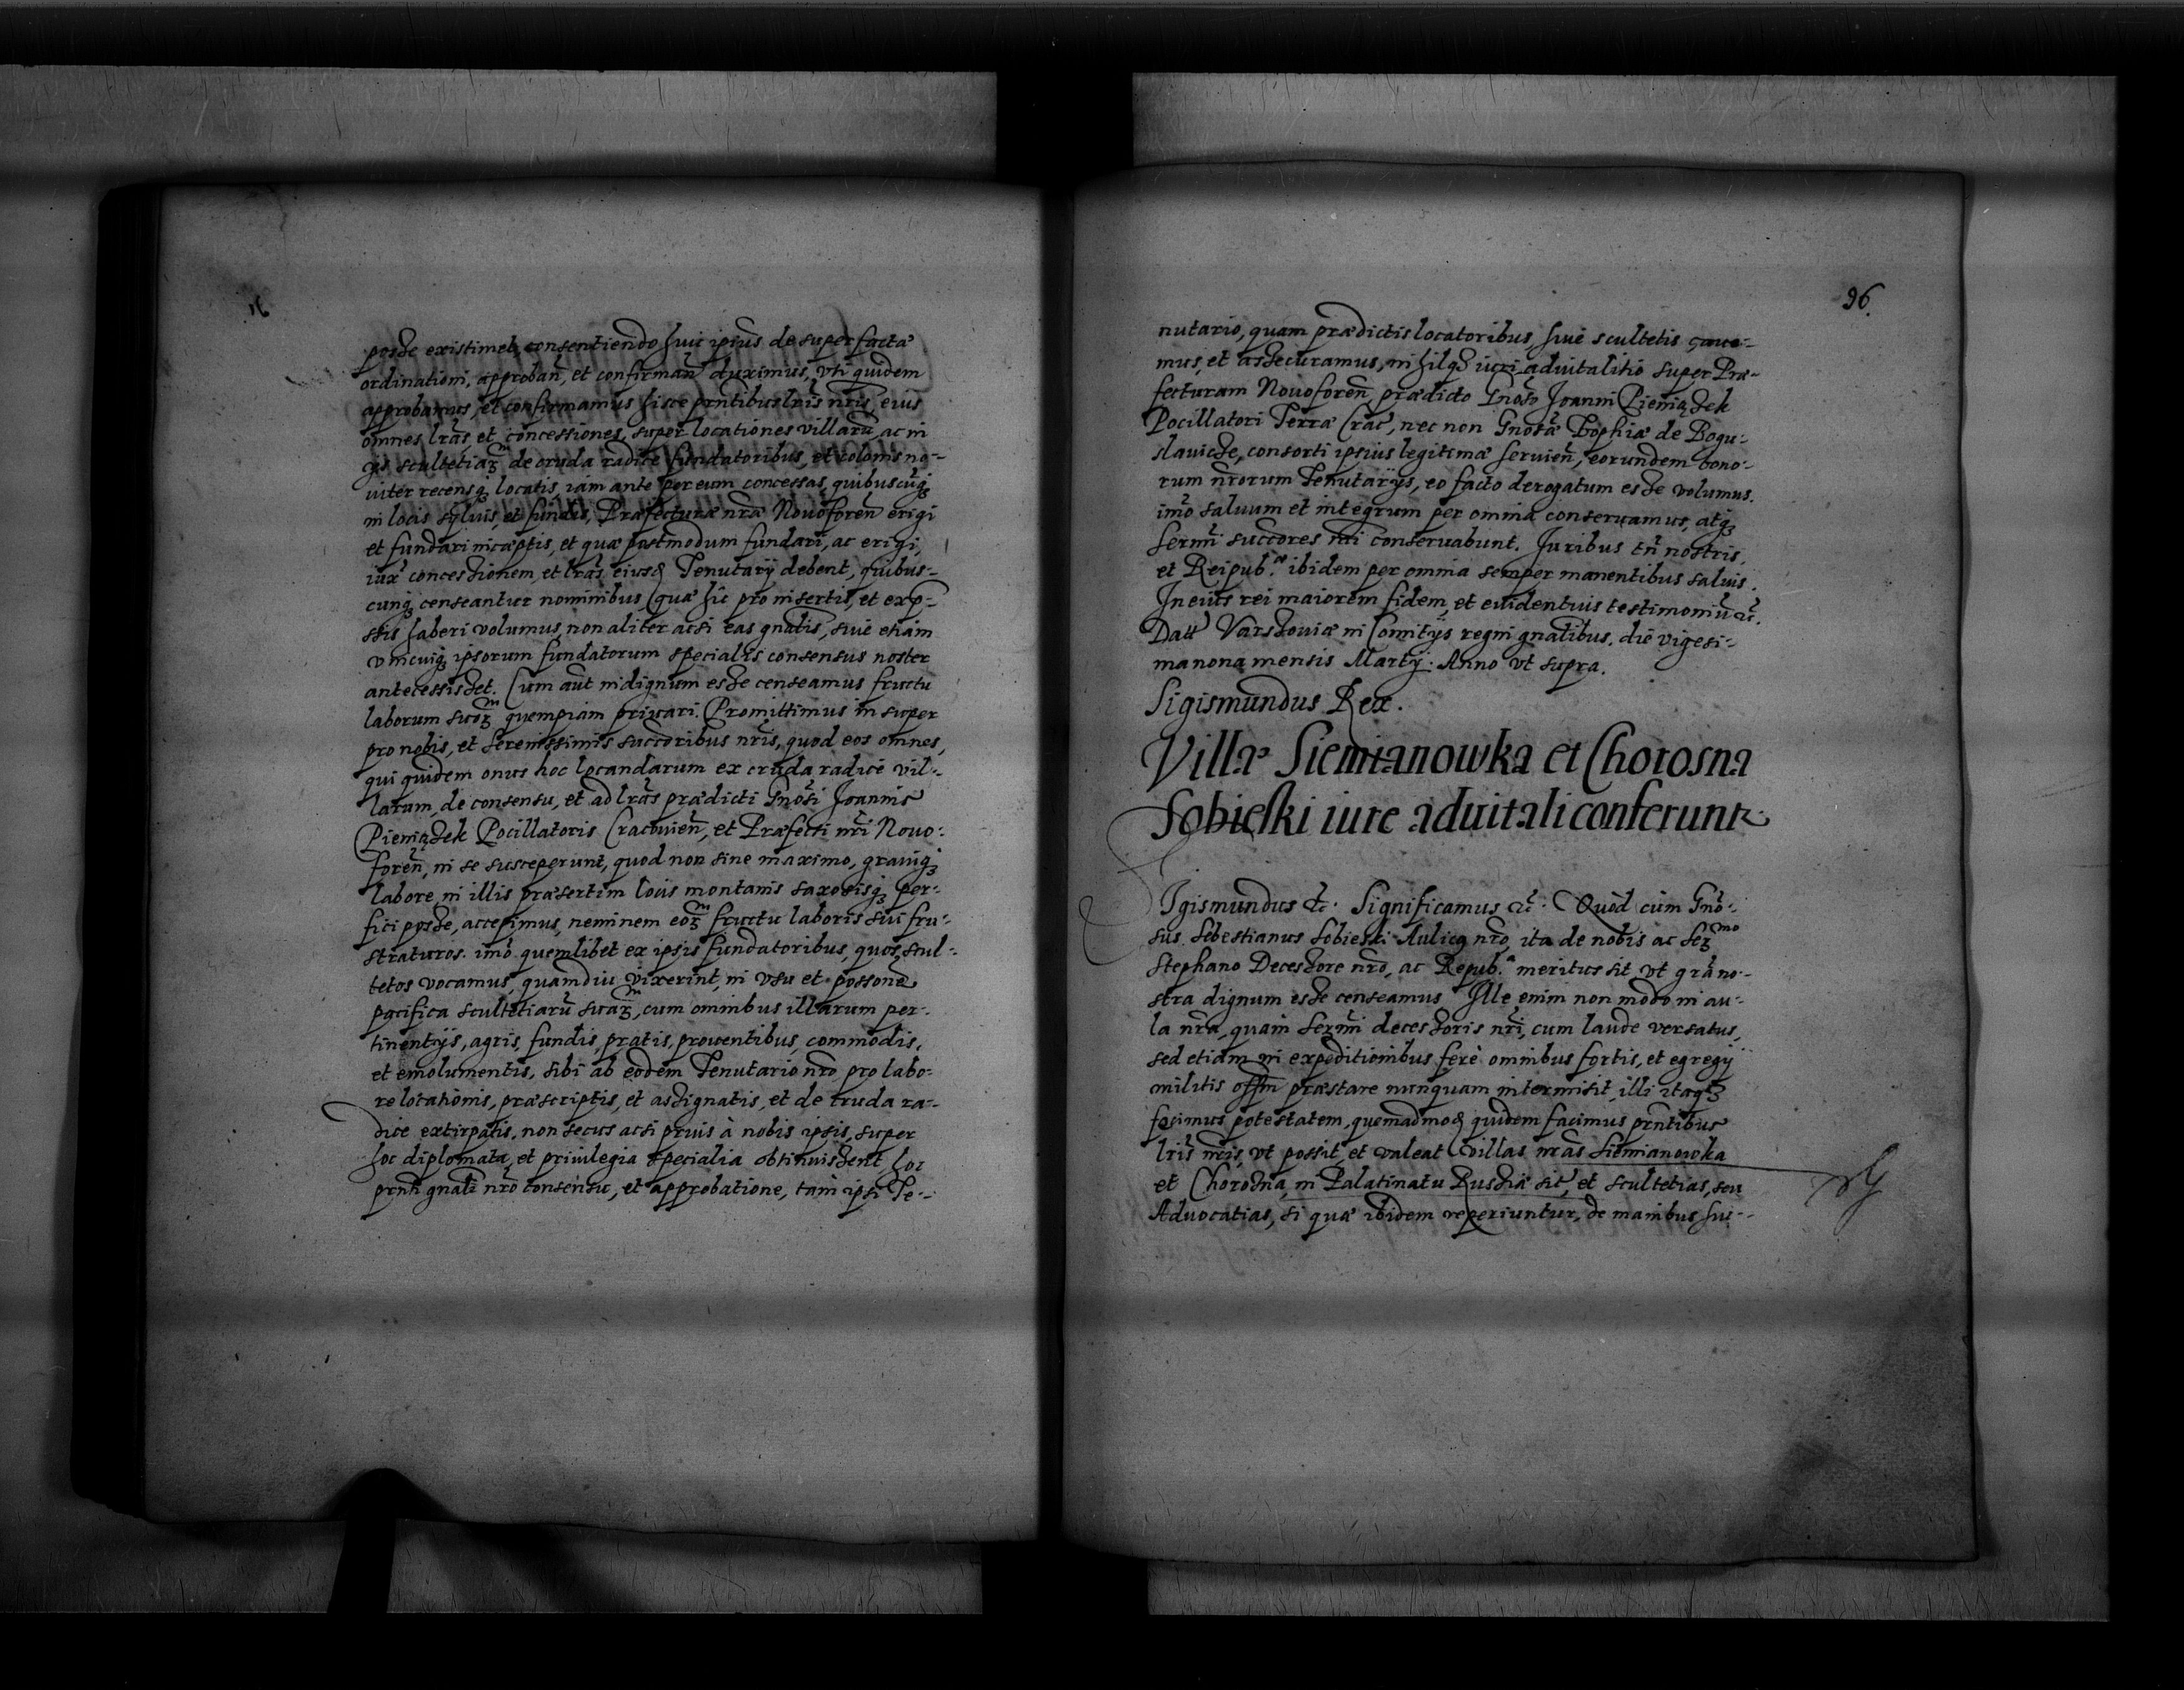 posse existimet, consentiendo huic ipsius desuper factae
ordinationi, approban̄, et confirman̄ duximus, vti quidem
approbamus, et confirmamus hisce prn̄tibus lrīs nrīs, eius
omnes lrās et concessiones, super locationes villarū, ac in
ijs scultetiaꝝ de cruda radice fundatoribus, et colonis no-
viter recensꝗ locatis, iam ante per eum concessas, quibuscūꝗ
in locis sylvis, et fundis, Præfecturæ nrāe Novoforen̄ erigi
et fundari incæptis, et quæ postmodum fundari, ac erigi,
iux̄ concessionem, et lrās eiusd̄ Tenutarij debent, quibus-
cunꝗ censeantur nominibus (quæ hic pro insertis, et exp̄-
ssis haberi volumus, non aliter acsi eas gnātis, sive etiam
vnicuiꝗ ipsorum fundatorum specialis consensus noster
antecessisset. Cum aūt indignum esse censeamus fructu
laborum suoꝝ quempiam privari. Promittimus insuper
pro nobis, et Serenissimis succōribus nrīs, quod eos omnes,
qui quidem onus hoc locandarum ex cruda radice vil-
larum, de consensu, et ad lrās prædicti Gnōsi Joannis
Pieniążek Pocillatoris Cracovien̄, et Præfecti nrī Novo-
foren̄, in se susceperunt, quod non sine maximo, graviꝗ
labore, in illis præsertim locis montanis saxosisꝗ per-
fici posse, accepimus, neminem eoꝝ fructu laboris sui fru-
straturos. imò quemlibet ex ipsis fundatoribus, quos scul-
tetos vocamus, quamdiu vixerint, in vsu et possōne
pacifica scultetiarū suaꝝ, cum omnibus illarum per-
tinentijs, agris, fundis, pratis, proventibus, commodis,
et emolumentis, sibi ab eodem Tenutario nrō pro labo-
re locationis, præscriptis, et assignatis, et de cruda ra-
dice extirpatis, non secus acsi prius à nobis ipsis, super
hoc diplomata, et privilegia specialia obtinuissent, hoc
prn̄ti gnāli nrō consensu, et approbatione, tam ipsi Te-
96.
nutario, quam prædictis locatoribus, sive scultetis cave-
mus, et assecuramus, nihilqꝫ iuri advitalitio super Præ-
fecturam Novoforen̄, prædicto Gnōso Joanni Pieniążek
Pocillatori Terræ Crac̄, nec non Gnōsæ Zophiæ de Bogu-
slavicze, consorti ipsius legitimæ servien̄, eorundem bono-
rum nrōrum Tenutarijs, eo facto derogatum esse volumus.
imò salvum et integrum per omnia conservamus, atꝗ
Sermī succōres nrī conservabunt. Juribus tn̄ nostris,
et Reipub.ᶜᵃᵉ ibidem per omnia semper manentibus salvis.
In eius rei maiorem fidem, et evidentius testimoniū &c̄.
Datt Varssoviæ in Comitijs regni gnālibus. die vigesi-
manona mensis Martij. Anno vt supra.
Sigismundus Rex.
Villæ Siemianowka et Chorosna
Sobieski iure advitali conferuntꝛ
Sigismundus &c. Significamus &c̄. Quòd cùm Gnō-
sus Sebestianus Sobieski Aulicꝯ nrō, ita de nobis ac Seꝝᵐᵒ
Stephano Decessore nrō, ac Repub.ᵃ meritus sit, vt grā no-
stra dignum esse censeamus Ille enim non modo in au-
la nrā, quàm Serm̄i decessoris nrī, cum laude versatus,
sed etiam in expeditionibus ferè omnibus fortis, et egregij
militis offm̄ præstare nunquam intermisit, illi itaqꝫ
facimus potestatem, quemadmod̄ quidem facimus prn̄tibus
lrīs nrīs, vt possit, et valeat villas nrās Siemianowka
et Chorosna, in Palatinatu Russiæ sit, et scultetias, seu
Advocatias, si quæ ibidem reperiuntur, de manibus sui-